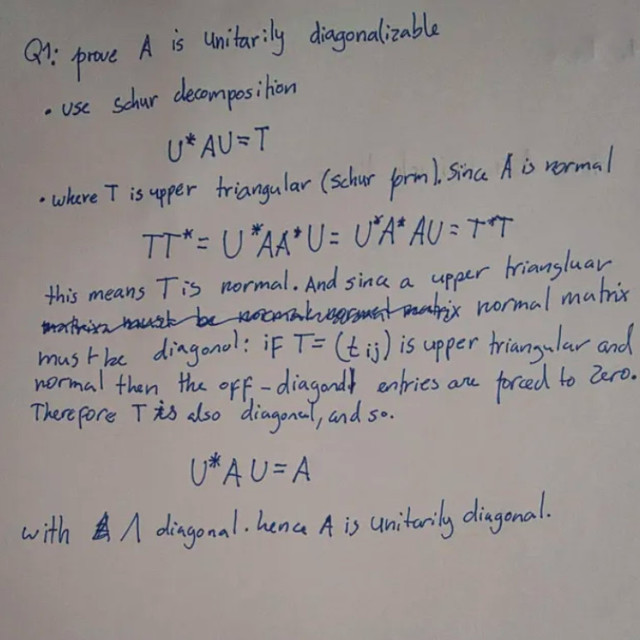 Q1: prove A is unitarily diagonalizable
• use Schur decomposition
U* AU = T
• where T is upper triangular (schur form). Since A is normal
TT* = U*AA*U = U*A*AU = T*T
this means T is normal. And since a upper triangluar
normal matrix
must be diagonal: if T = (t ij) is upper triangular and
normal then the off-diagonal entries are forced to zero.
Therefore T is also diagonal, and so.
U* A U = A
with Λ diagonal. hence A is unitarily diagonal.